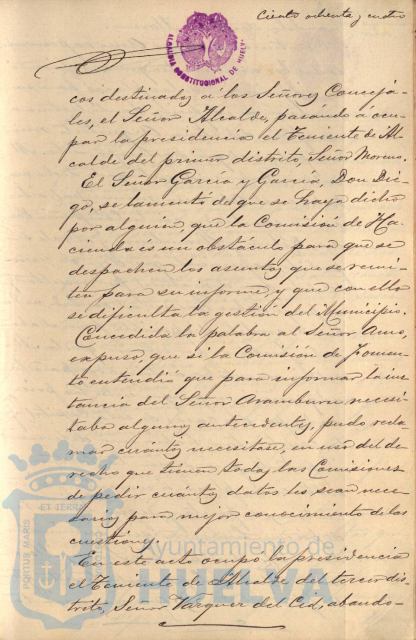 Ciento ochenta y cuatro
ALCALDIA CONSTITUCIONAL DE HUELVA
cos destinados a los Señores Conceja-
les, el Señor Alcalde, pasando á ocu-
par la presidencia el Teniente de Al-
calde del primer distrito, Señor Moreno.
El Señor García y García, Don Die-
go, se lamento de que se haya dicho
por alguien que la Comisión de Ha-
cienda es un obstáculo para que se
despachen los asuntos que se remi-
ten para su informe y que con ello
se dificulta la gestión del Municipio.
Concedida la palabra al Señor Amo,
expuso, que si la Comisión de Fomen-
to entendió que para informar la ins-
tancia del Señor Aramburu necesi-
taba algunos antecedentes, pudo recla-
mar cuántos necesitase, en uso del de-
recho que tienen todas las Comisiones
de pedir cuántos datos les sean nece-
sarios para mejor conocimiento de las
cuestiones.
En este acto ocupó la presidencia
el Teniente de Alcalde del tercer dis-
trito, Señor Vázquez del Cid, abando-
PORTUS MARIS ET TERRAE
Ayuntamiento de
HUELVA